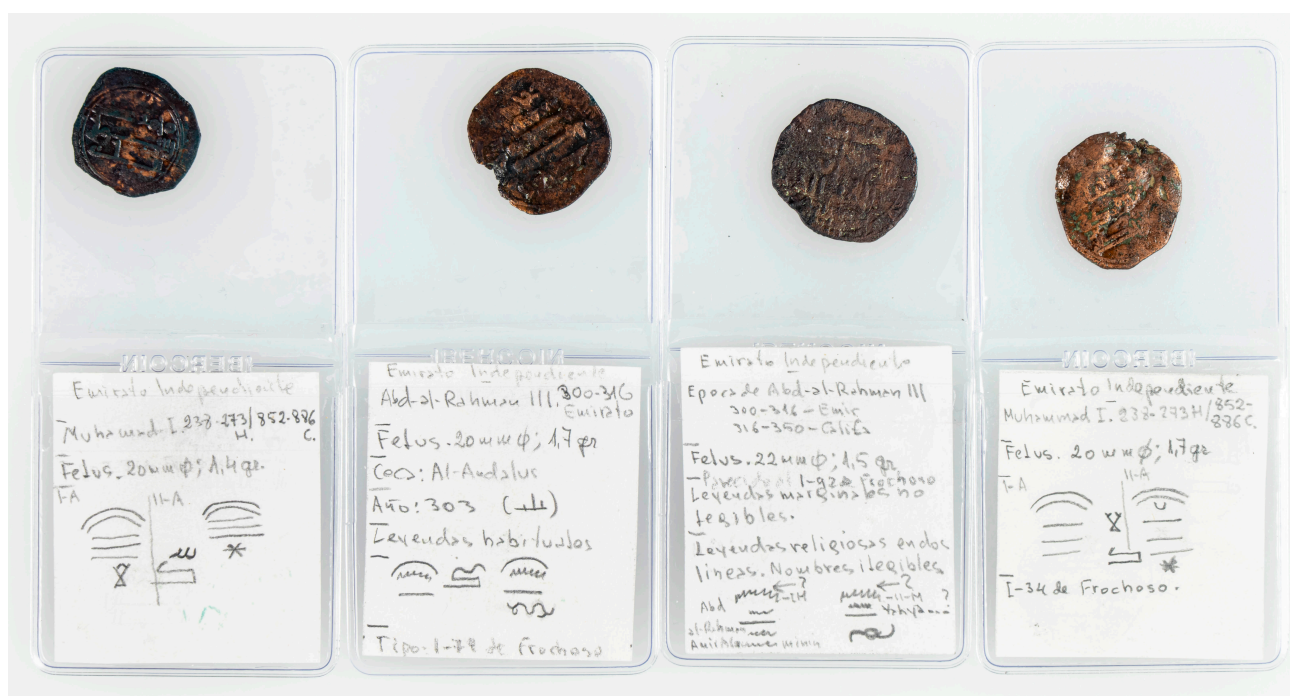 IBERCOIN
Emirato Independiente
Muhamad I. 238-273/852-886
H. C.
Felus. 20mm φ; 1,4 gr.
I-A II-A
Emirato Independiente
Abd-al-Rahman III. 300-316
Emirato
Felus. 20mm φ; 1,7 gr
Ceca: Al-Andalus
Año: 303
Leyendas habituales
Tipo: de Frochoso
Emirato Independiente
Epoca de Abd-al-Rahman III
300-316-Emir
316-350-Califa
Felus. 22mm φ; 1,5 gr.
Frochoso
Leyendas marginales no
legibles.
Leyendas religiosas en dos
lineas. Nombres ilegibles
Abd
al-Rahman
IBERCOIN
Emirato Independiente
Muhammad I. 238-273H/852-
886C.
Felus. 20 mm φ; 1,7gr
I-A II-A
I-34 de Frochoso.